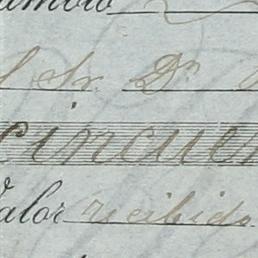 Sr. Dn
cincuen
Valor recibido